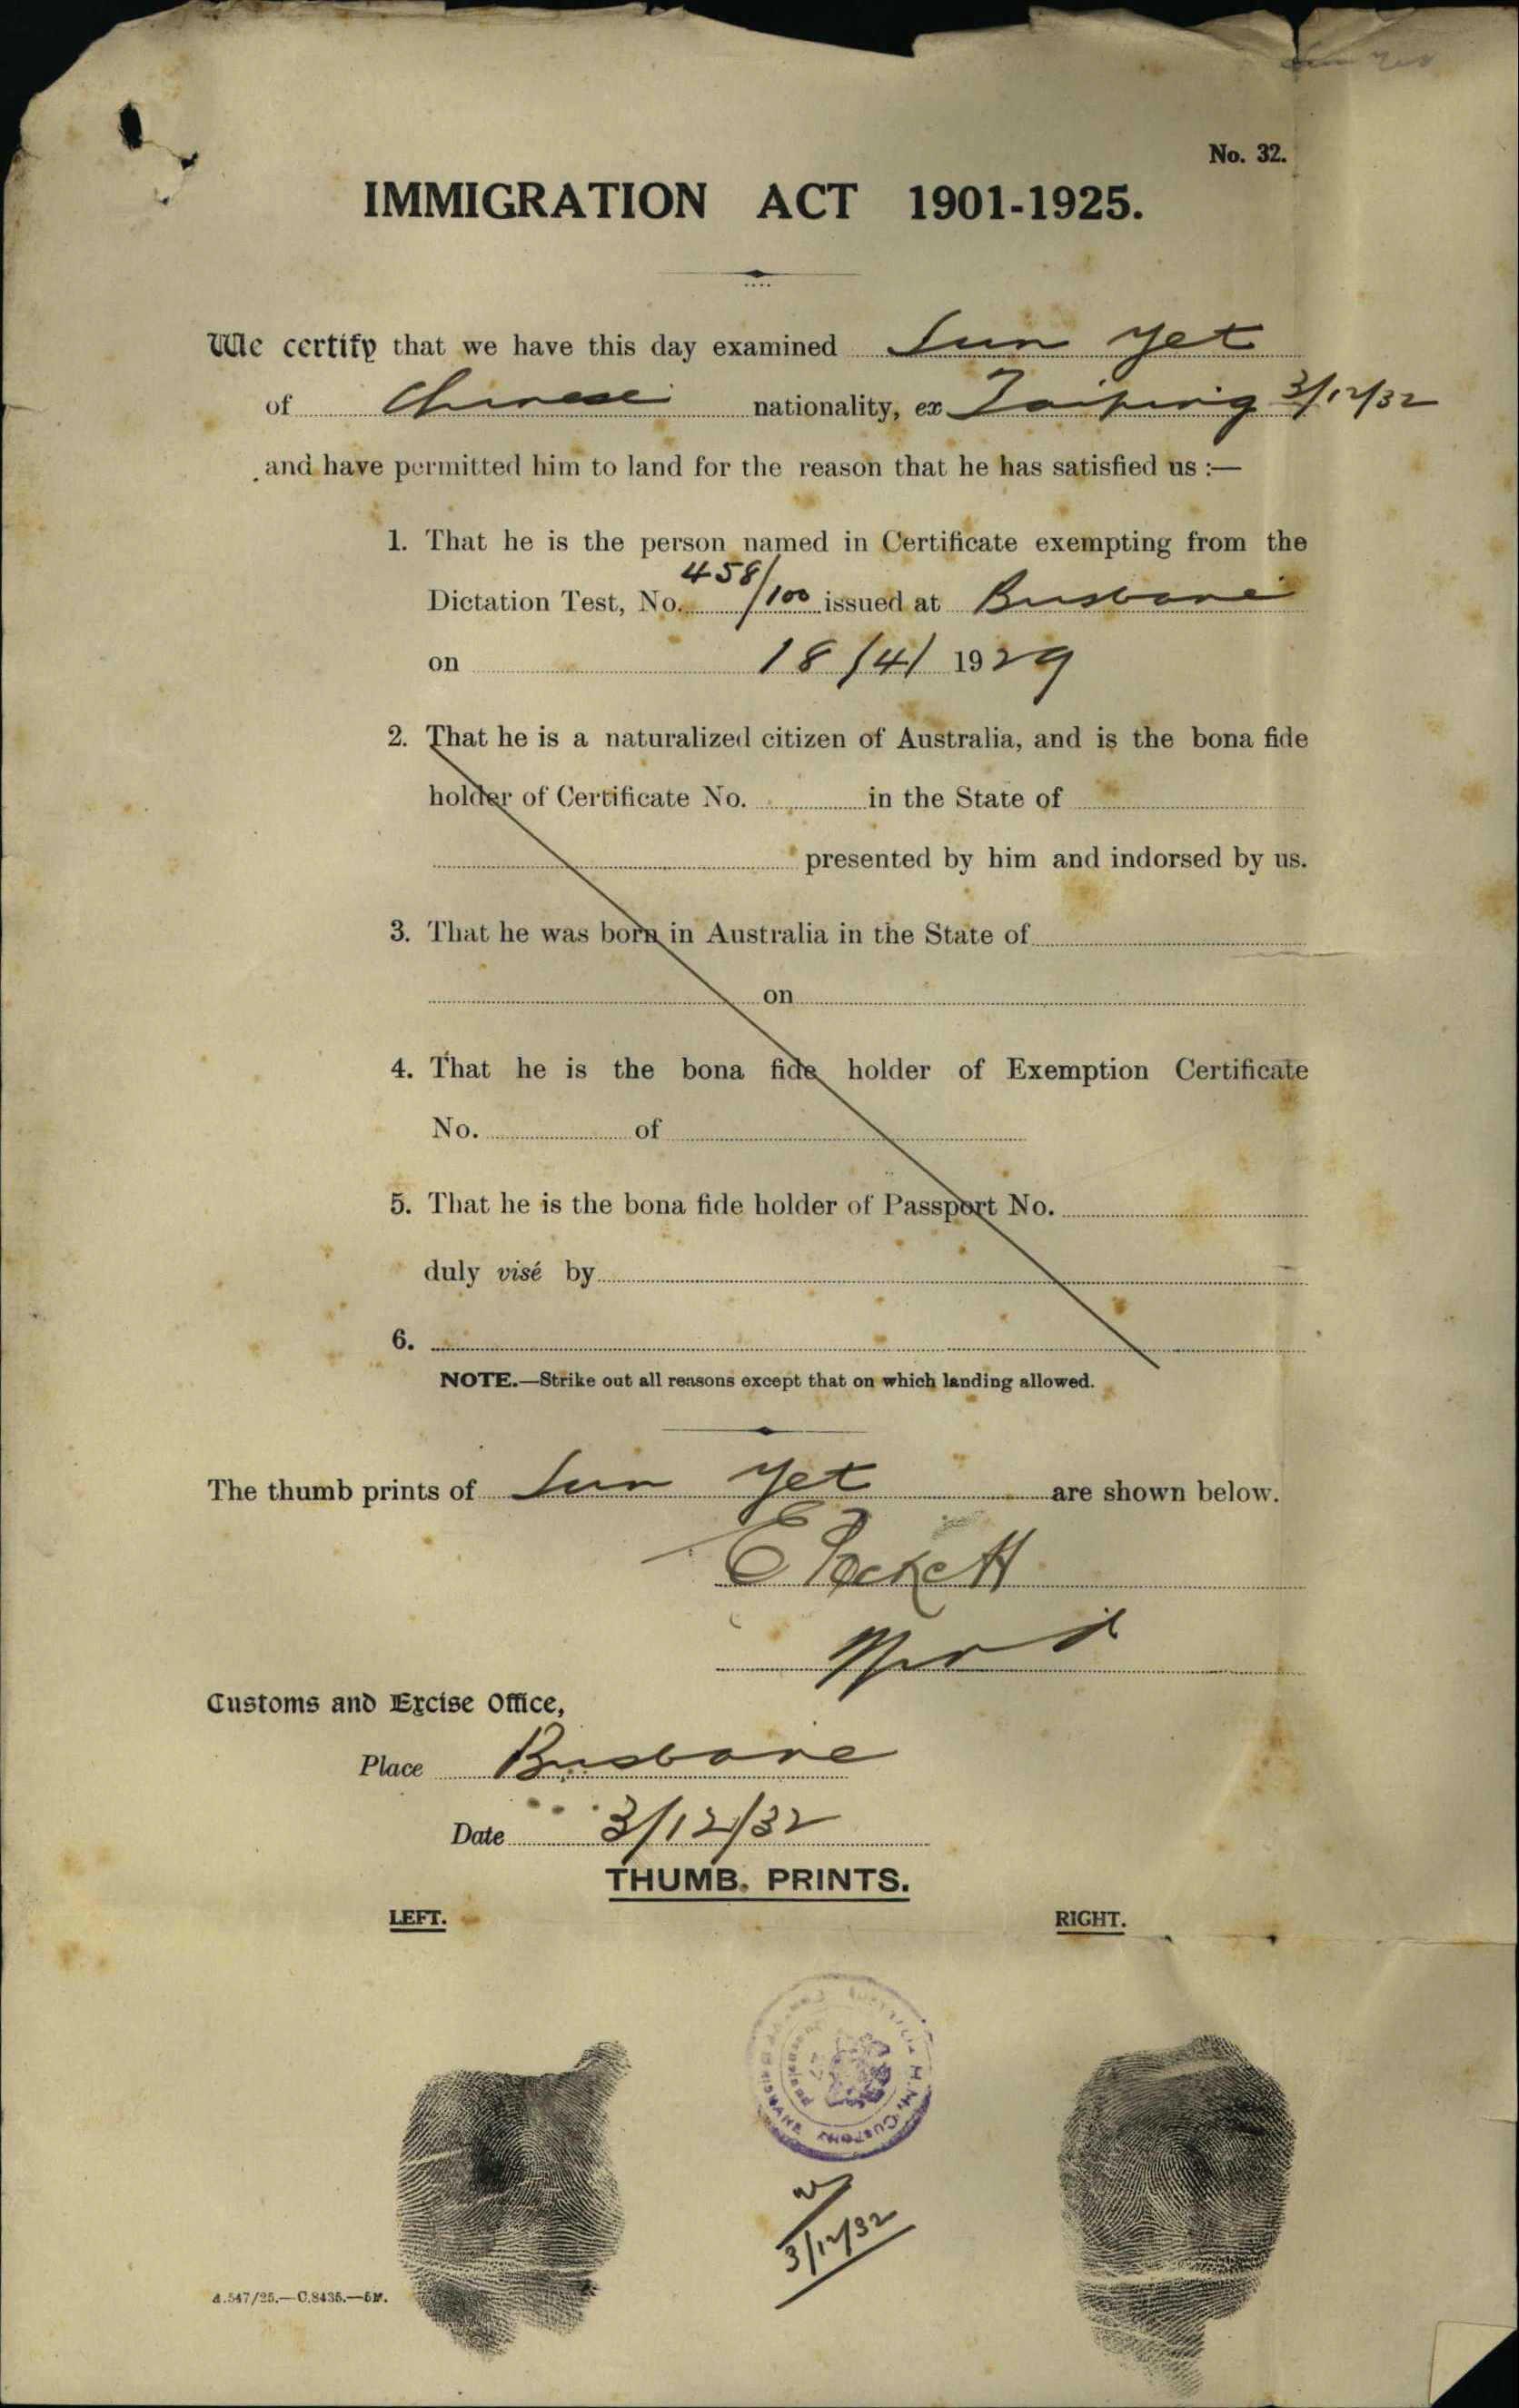 No. 32.
IMMIGRATION ACT 1901-1925.
We certify that we have this day examined Sun Yet
of Chinese nationality, ex Taiping 3/12/32
and have permitted him to land for the reason that he has satisfied us :—
1. That he is the person named in Certificate exempting from the
Dictation Test, No. 458/100 issued at Brisbane
on 18/4/1929
2. That he is a naturalized citizen of Australia, and is the bona fide
holder of Certificate No. in the State of
presented by him and indorsed by us.
3. That he was born in Australia in the State of
on
4. That he is the bona fide holder of Exemption Certificate
No. of
5. That he is the bona fide holder of Passport No.
duly visé by
6.
NOTE.—Strike out all reasons except that on which landing allowed.
The thumb prints of Sun Yet are shown below.
Customs and Excise Office,
Place Brisbane
Date 3/12/32
THUMB. PRINTS.
LEFT. RIGHT.
H.M. CUSTOMS BRISBANE
3/12/32
A.547/25.—C.8435.—5M.